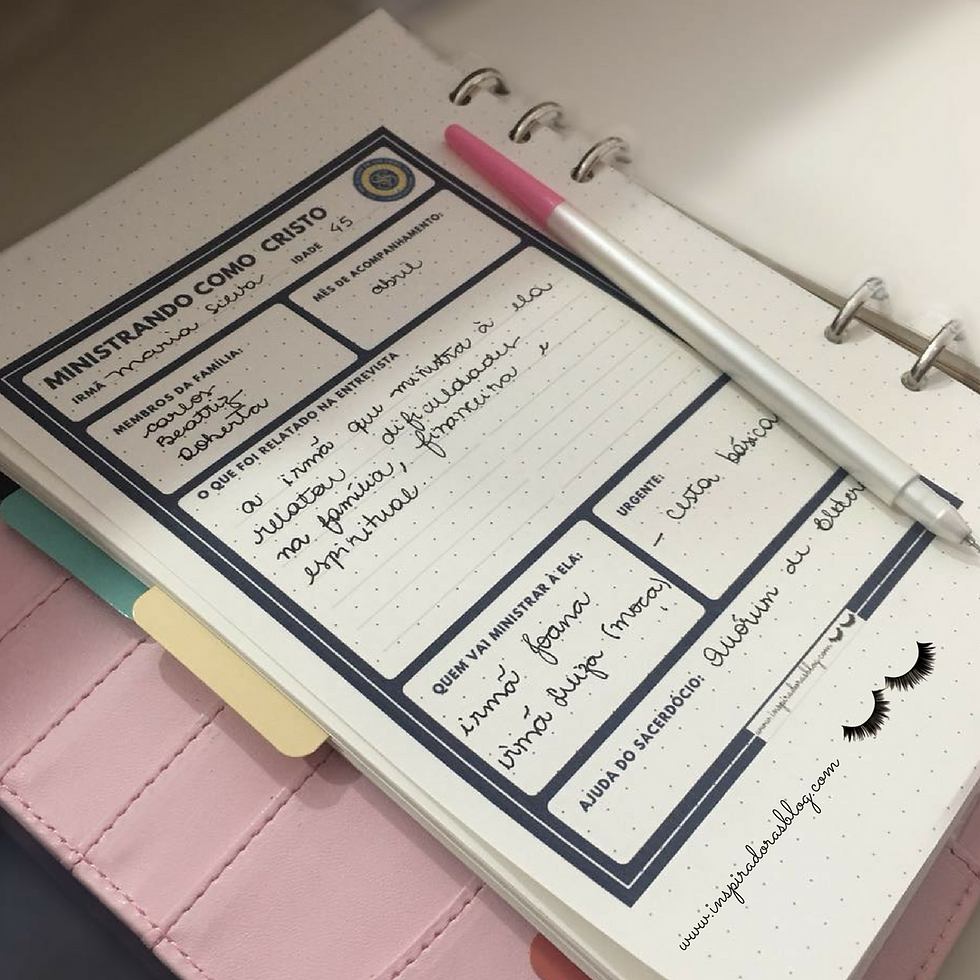 MINISTRANDO COMO CRISTO
IRMÃ maria silva IDADE 45
MEMBROS DA FAMÍLIA:
carlos
Beatriz
Roberta
MÊS DE ACOMPANHAMENTO:
abril
O QUE FOI RELATADO NA ENTREVISTA
a irmã que ministra à ela
relatou dificuldades
na família, financeira e
espiritual.
QUEM VAI MINISTRAR À ELA:
irmã Joana
irmã Luiza (moça)
URGENTE:
- cesta básica
AJUDA DO SACERDÓCIO: Quórum de
www.inspiradorasblog.com
www.inspiradorasblog.com